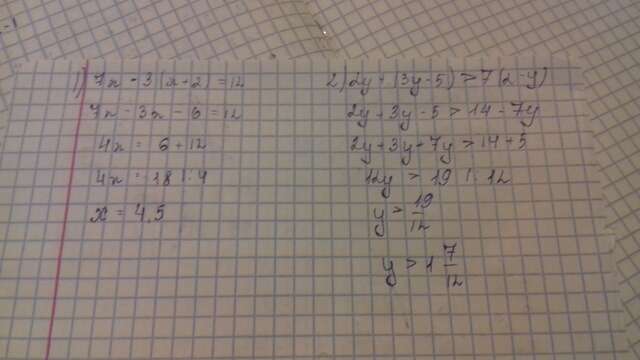 1) 7x - 3(x+2) = 12
7x - 3x - 6 = 12
4x = 6 + 12
4x = 18 : 4
x = 4,5
2) 2y + (3y-5) > 7(2-y)
2y + 3y - 5 > 14 - 7y
2y + 3y + 7y > 14 + 5
12y > 19 : 12
y > 19/12
y > 1 7/12